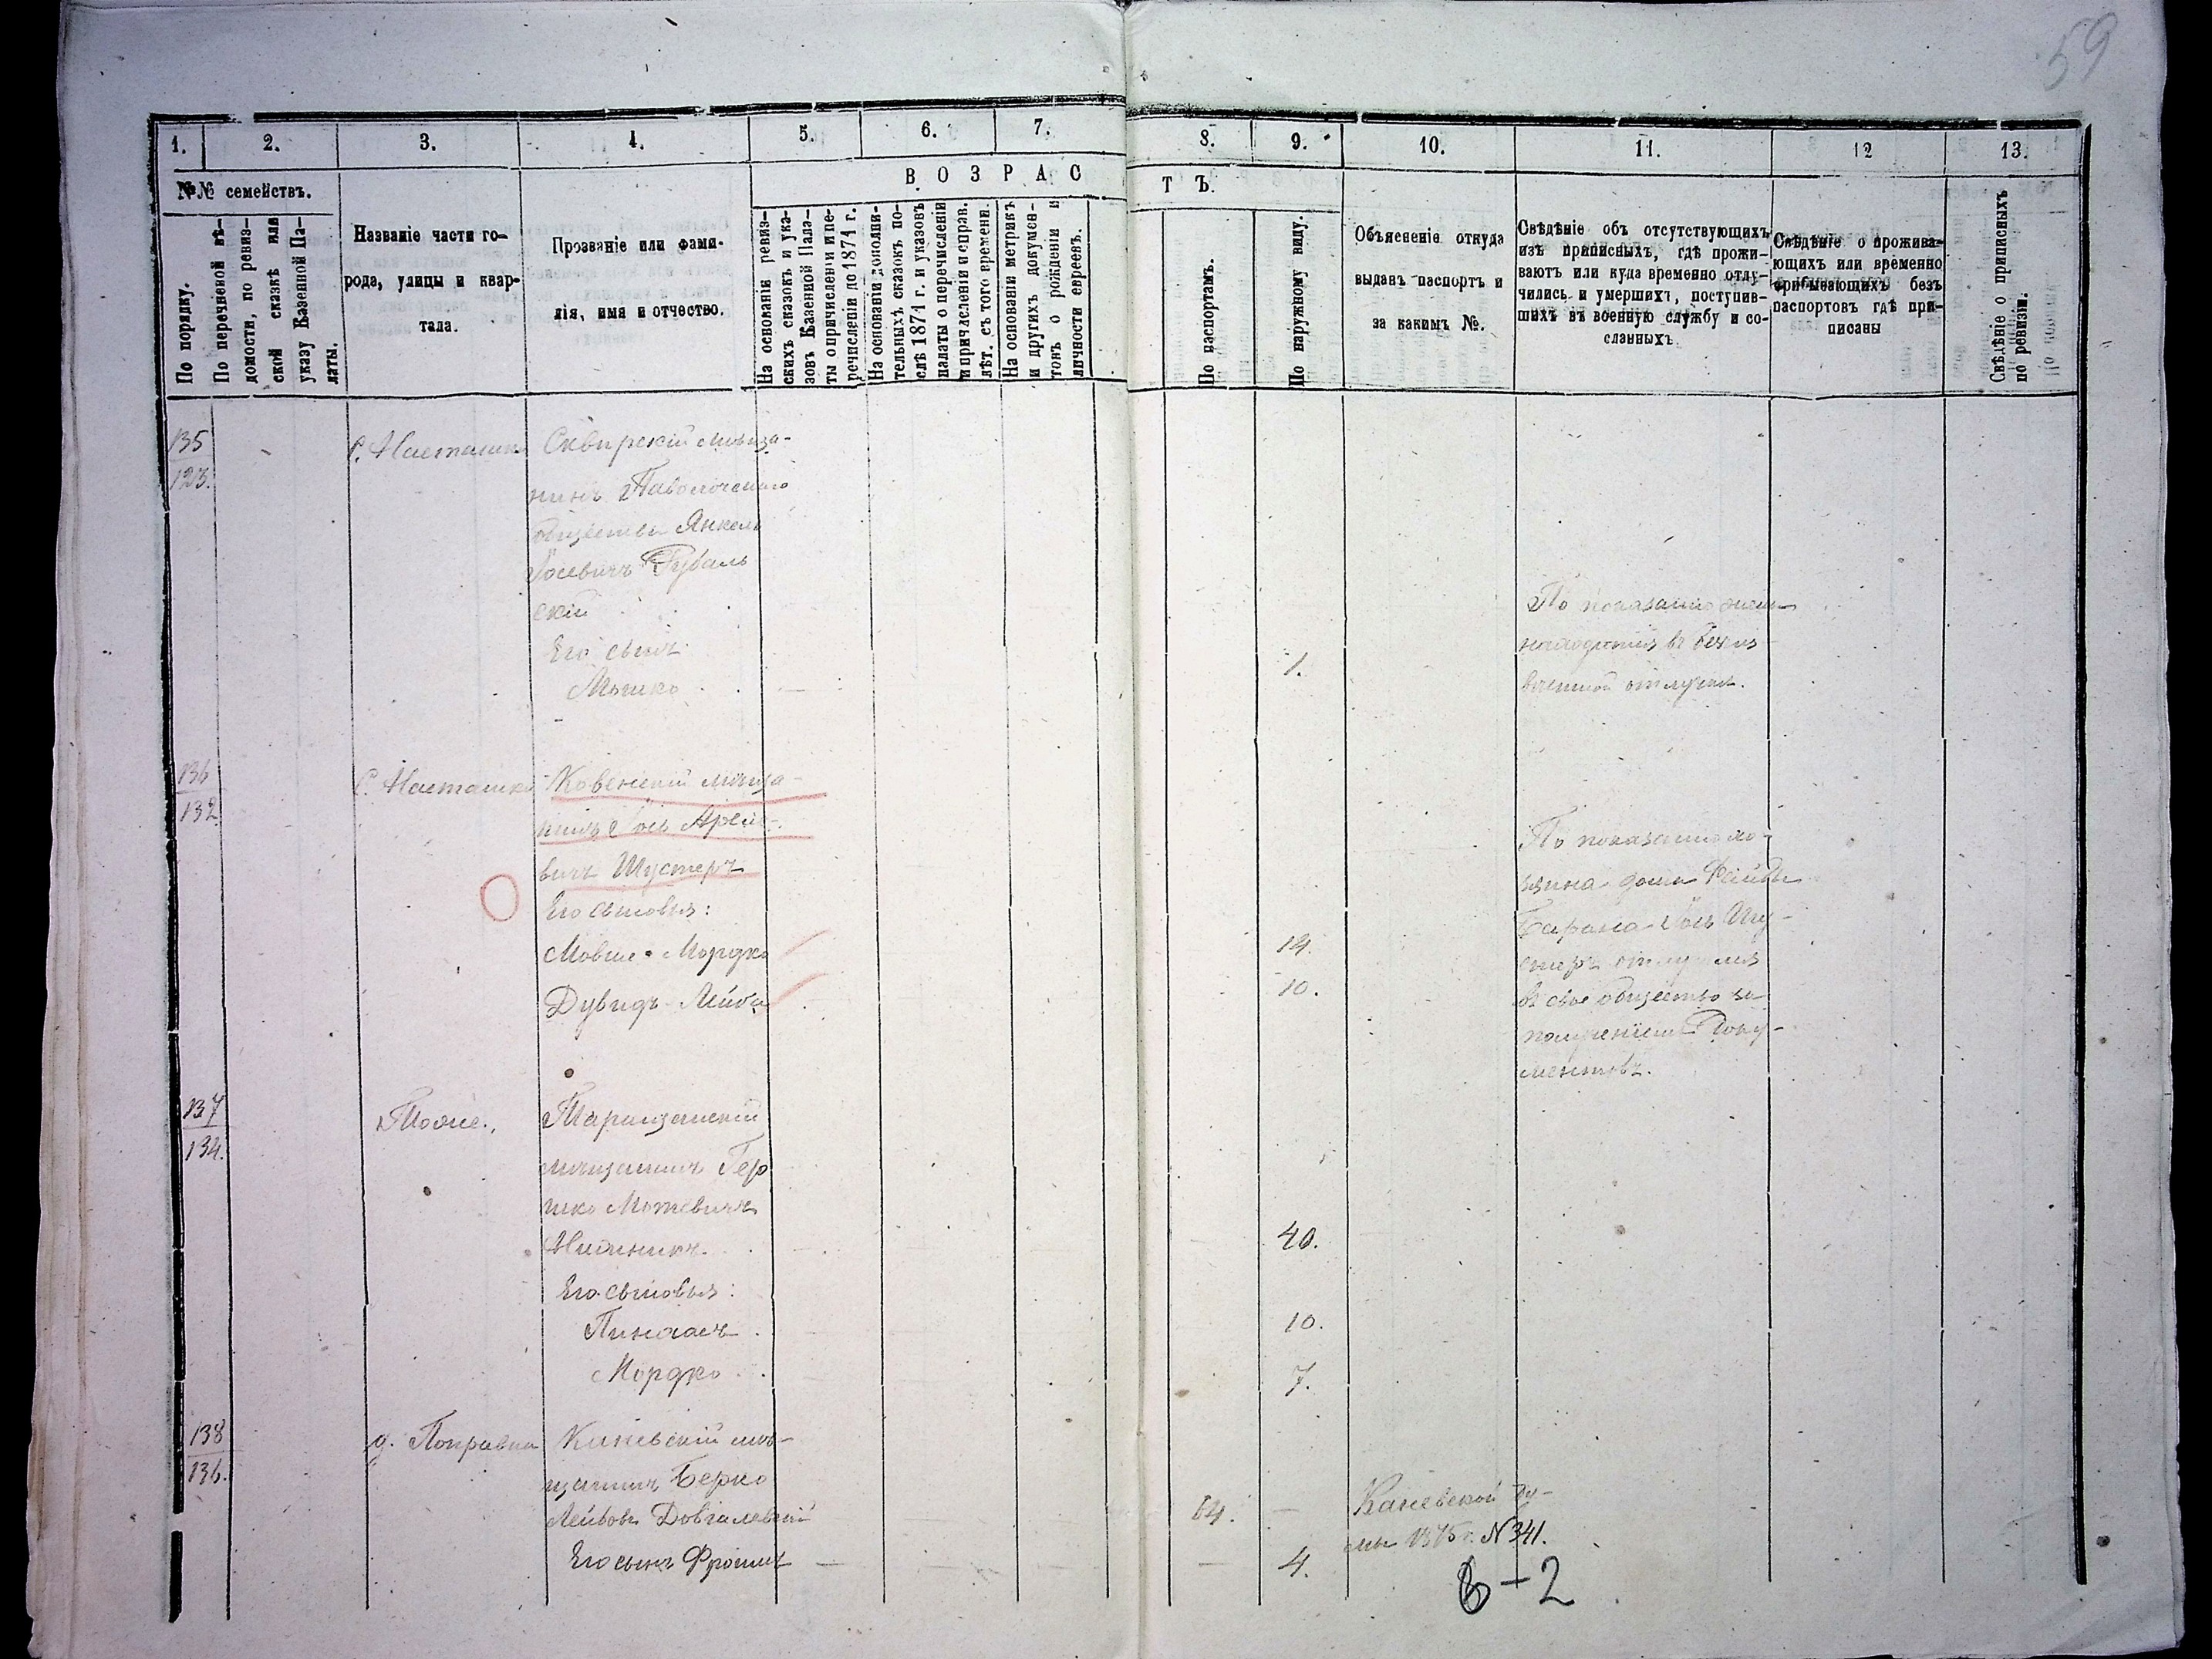 59
1. 2. 3. 4. 5. 6. 7. 8. 9. 10. 11. 12 13.
№№ семействъ.
По порядку.
По перечневой вѣ-
домости, по ревиз-
ской сказкѣ или
указу Казенной Па-
латы.
Названіе части го-
рода, улицы и квар-
тала.
Прозваніе или фами-
лія, имя и отчество.
ВОЗРАС
ТЪ.
На основаніи ревиз-
скихъ сказокъ и ука-
зовъ Казенной Пала-
ты о причисленіи и пе-
речисленіи до 1874 г.
На основаніи дополни-
тельныхъ сказокъ по-
слѣ 1874 г. и указовъ
палаты о перечисленіи
и причисленіи исправ.
лѣт. съ того времени.
На основаніи метрикъ
и другихъ докумен-
товъ о рожденіи и
личности евреевъ.
По паспортамъ.
По наружному виду.
Объясненіе откуда
выданъ паспортъ и
за какимъ №.
Свѣдѣніе объ отсутствующихъ
изъ приписныхъ, гдѣ прожи-
ваютъ или куда временно отлу-
чились и умершихъ, поступив-
шихъ въ военную службу и со-
сланныхъ
Свѣдѣніе о прожива-
ющихъ или временно
прибывающихъ безъ
паспортовъ гдѣ при-
писаны
Свѣдѣніе о приписныхъ
по ревизіи.
135
123.
С. Насташка
Сквирскій мѣща-
нинъ Паволочскаго
общества Янкель
Іосевичъ Рубаль
скій
Его сынъ:
Мошко
1.
По показанію
находится въ безъиз
вѣстной отлучкѣ.
136
132
С. Насташка
Ковенскій мѣща-
нинъ Іось Арен-
вичъ Шустеръ
Его сыновья:
Мовша-Мордко
14.
Дувидъ-Лейба
10.
По показанію хо-
зяина дома
Барана Іось Шу-
стеръ отлучился
въ свое общество за
полученіемъ доку-
ментовъ.
137
134.
Тоже.
Таращанскій
мѣщанинъ Гер
шко Мотевичъ
40.
Его сыновья:
Пинхасъ
10.
Мордко
7.
138
136.
д. Поправка
Каневскій мѣ-
щанинъ Берко
Лейбовъ Довгалевскій
64.
Каневской Ду-
мы 1875 г. N 341.
Его сынъ Фроимъ
4.
6-2